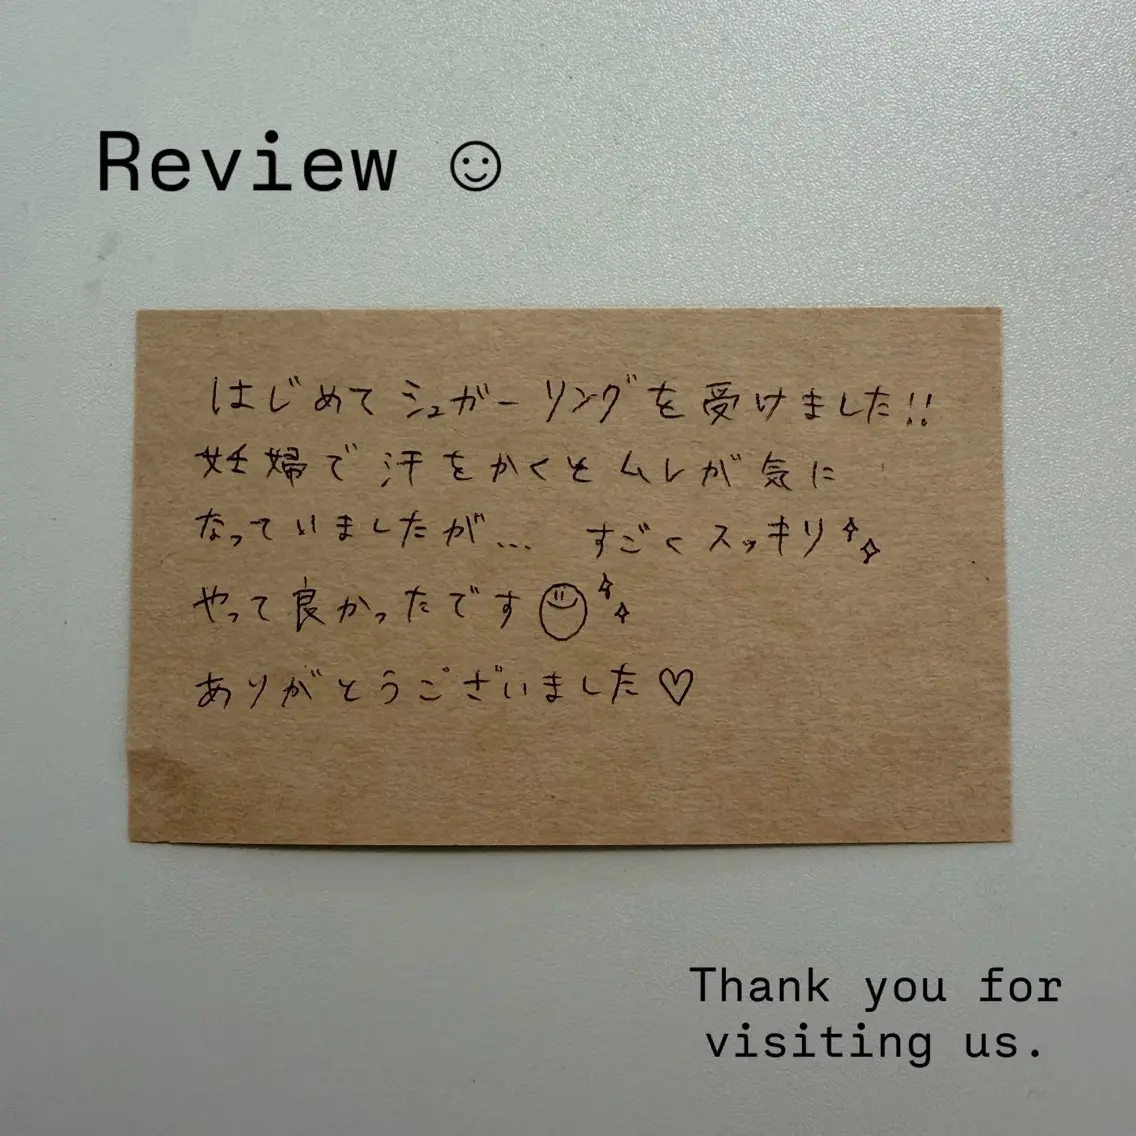 Review ☺
はじめてシュガーリングを受けました!!
妊婦で汗をかくとムレが気に
なっていましたが... すごくスッキリ✨
やって良かったです☺✨
ありがとうございました♡
Thank you for
visiting us.